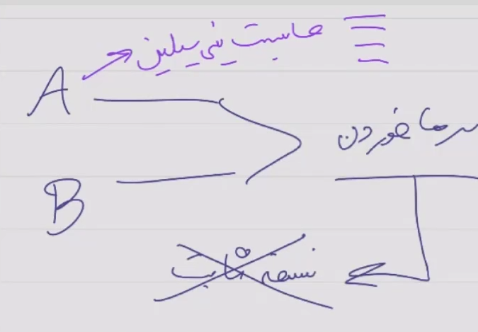 حساسیت پنی سیلین
A
سرما خوردن
B
نسخه ثابت